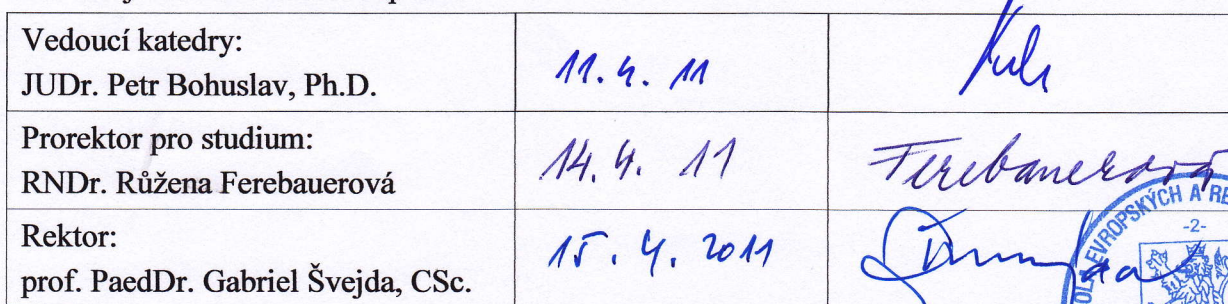 Vedoucí katedry:
JUDr. Petr Bohuslav, Ph.D.
11. 4. 11
Prorektor pro studium:
RNDr. Růžena Ferebauerová
14. 4. 11
Ferebauerová
Rektor:
prof. PaedDr. Gabriel Švejda, CSc.
15. 4. 2011
EVROPSKÝCH A RE
-2-